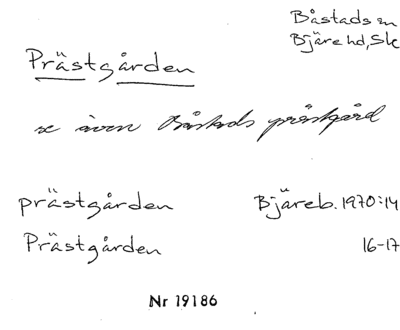 Båstads sn
Bjäre hd, Sk
Prästgården
se även Båstads prästgård
prästgården Bjäreb. 1970:14
Prästgården 16-17
Nr 19186